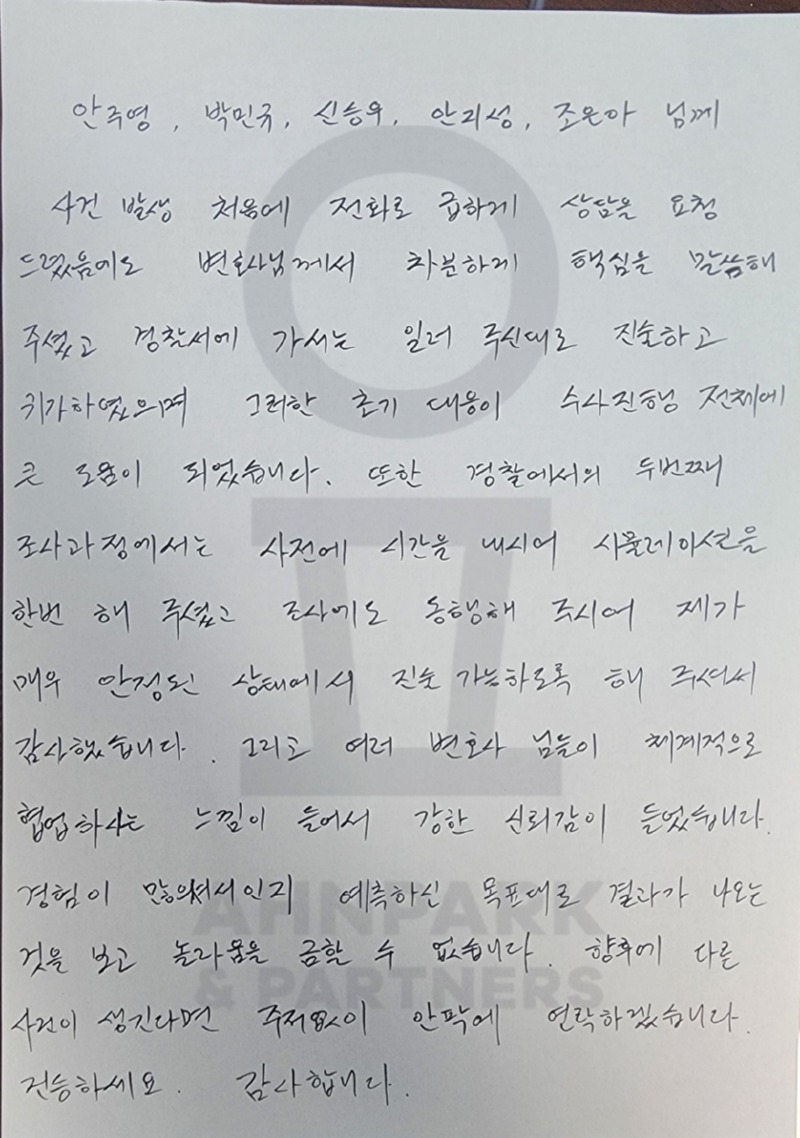 안주영, 박민규, 신승우, 안지성, 조은아 님께
사건 발생 처음에 전화로 급하게 상담을 요청
드렸음에도 변호사님께서 차분하게 핵심을 말씀해
주셨고 경찰서에 가서는 일러 주신대로 진술하고
귀가하였으며 그러한 초기 대응이 수사진행 전체에
큰 도움이 되었습니다. 또한 경찰에서의 두번째
조사과정에서는 사전에 시간을 내시어 시뮬레이션을
한번 해 주셨고 조사에도 동행해 주시어 제가
매우 안정된 상태에서 진술 가능하도록 해 주셔서
감사했습니다. 그리고 여러 변호사 님들이 체계적으로
협업하시는 느낌이 들어서 강한 신뢰감이 들었습니다.
경험이 많으셔서인지 예측하신 목표대로 결과가 나오는
것을 보고 놀라움을 금할 수 없습니다. 향후에 다른
사건이 생긴다면 주저없이 안팍에 연락하겠습니다.
건승하세요. 감사합니다.
AHNPARK
& PARTNERS